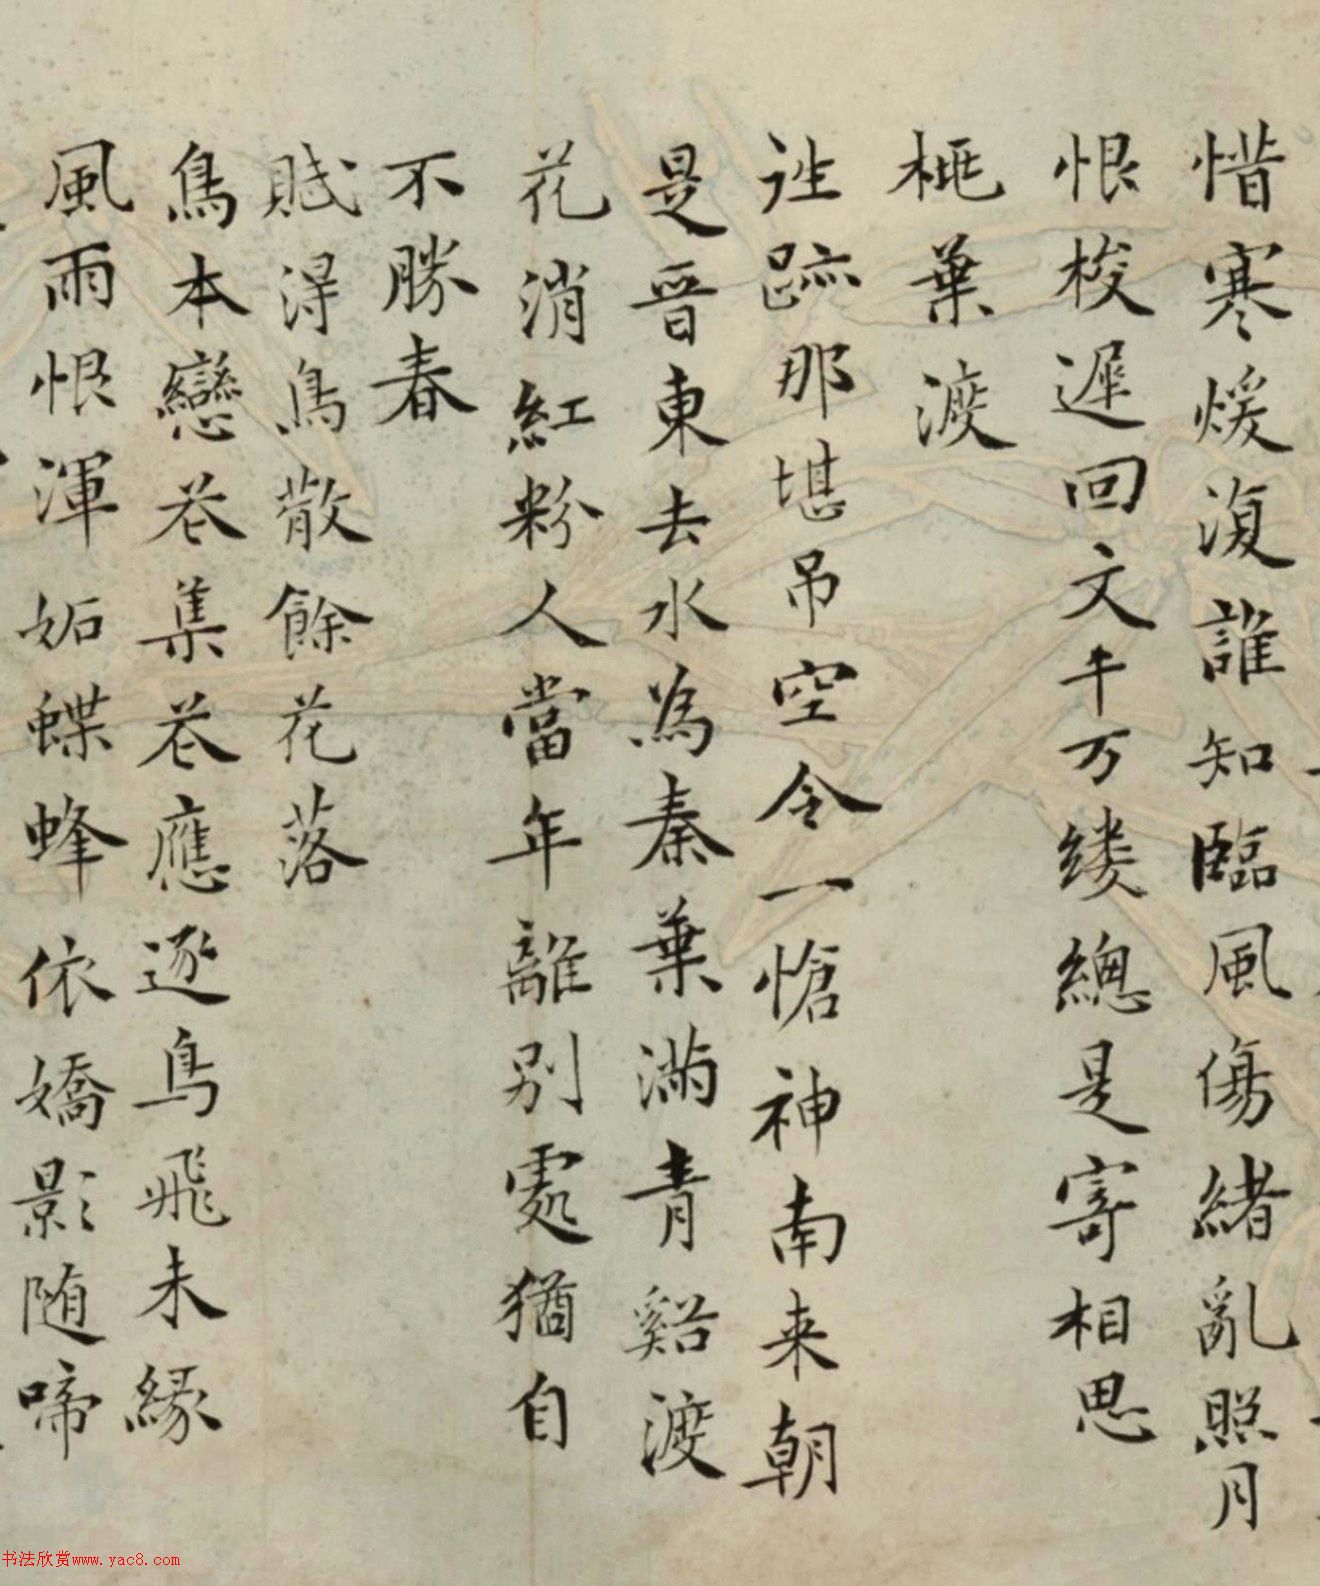 惜寒煖復誰知臨風傷緒亂照月
恨梭遲回文千万缕總是寄相思
桃葉渡
往跡那堪吊空令一愴神南来朝
是晋東去水為秦葉滿青谿渡
花消紅粉人當年離別處猶自
不勝春
賦得鳥散餘花落
鳥本戀花集花應逐鳥飛未緣
風雨恨渾妬蝶蜂依嬌影随啼
书法欣赏www.yac8.com